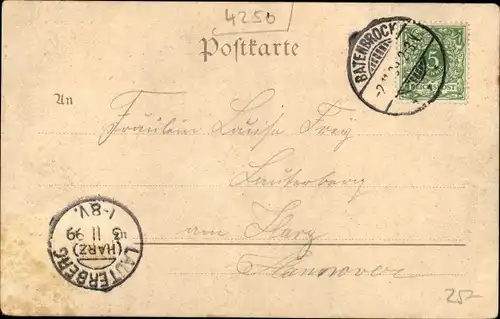 4250
Postkarte
BATENBROCK
5
REICHSPOST
An
Fräulein Louise Frey
Lauterberg
am Harz
Hannover
LAUTERBERG
(HARZ)
3 11 99
1-8V.
25-